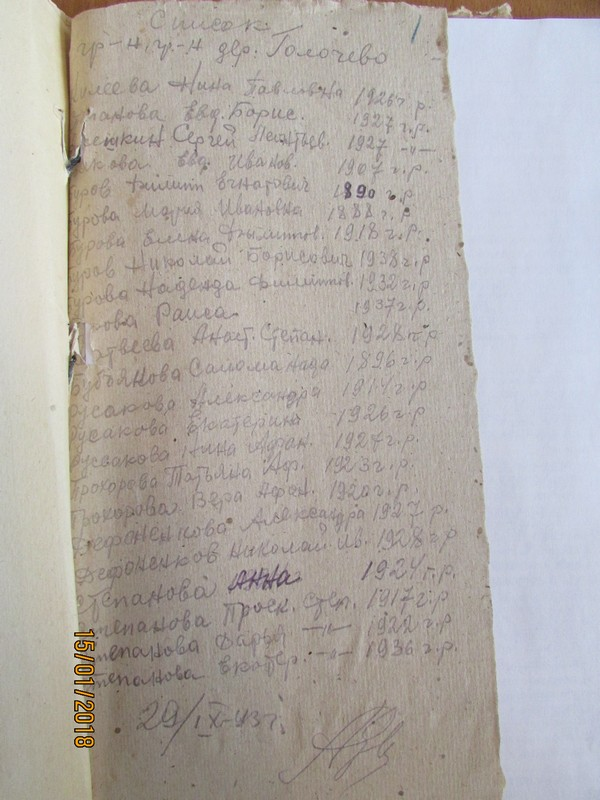 Список 1
гр-н, гр-н дер. Голочево
Нина Павловна 1926 г.р.
Евд. Борис. 1927 г.р.
Сергей Леонтьев. 1927 -"-
Евд. Иванов. 1907 г.р.
Филипп Егнатович 1890 г.р
Мария Ивановна 1888 г.р
Елена Филиппов. 1918 г.р.
Николай Борисович 1938 г.р
Надежда Филиппов 1932 г.р.
Раиса 1937 г.р.
Анаст. Степан. 1928 г.р
Саломанида 1896 г.р
Александра 1914 г.р.
Екатерина 1926 г.р.
Нина Афан. 1927 г.р.
Прохорова Татьяна Аф. 1923 г.р.
Прохорова Вера Афан. 1920 г.р.
Дефоненкова Александра 1927 г.р.
Дефоненков Николай Ив. 1928 г.р
Степанова Анна 1924 г.р.
Степанова Проск. Степ. 1917 г.р
Степанова Дарья -"- 1922 г.р
Степанова Екатер. -"- 1936 г.р
29/IX-43 г.
15/01/2018